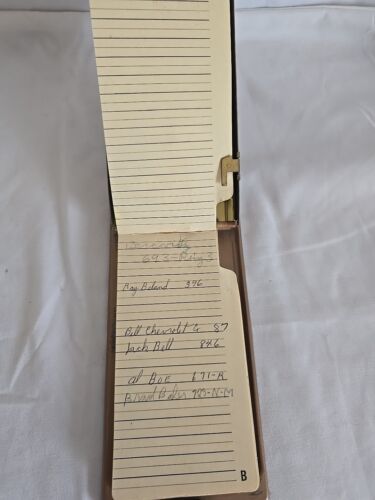 693-Ring 3
Ray Boland 376
Bell Chevrolet Co 87
Jack Bell 846
Al Boe 671-R
985-N-M
B